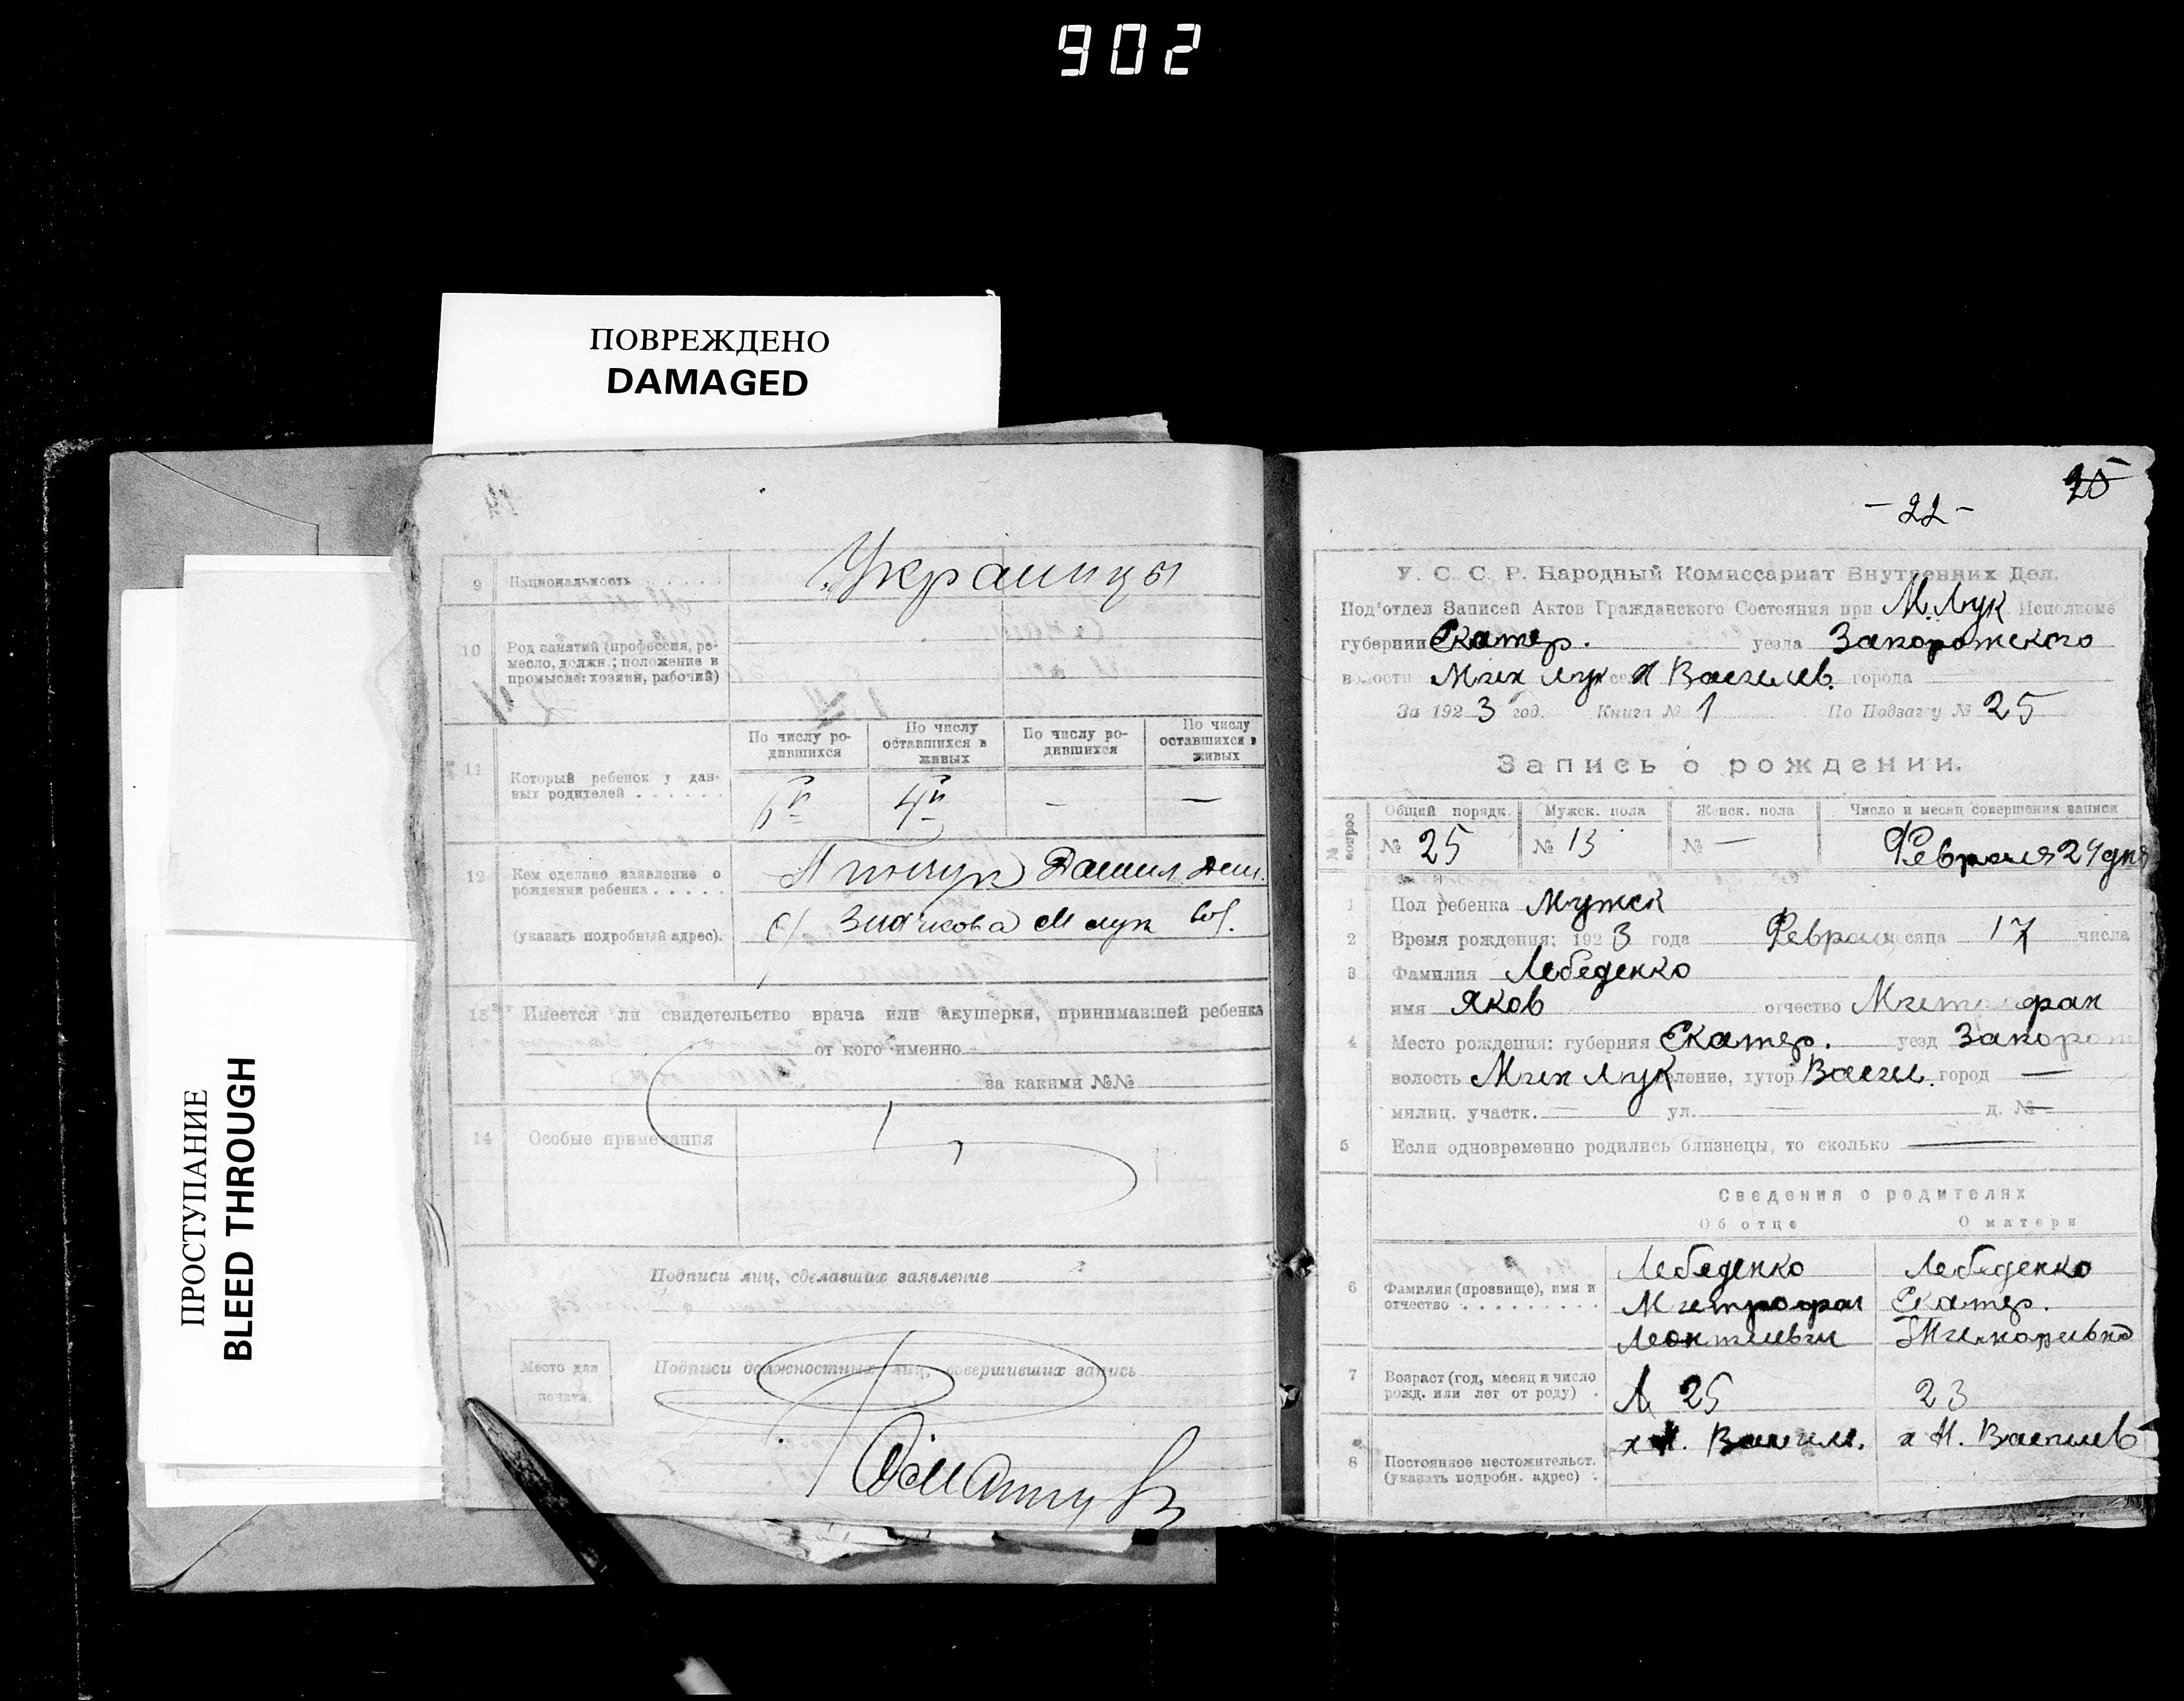 902
ПОВРЕЖДЕНО
DAMAGED
ПРОСТУПАНИЕ
BLEED THROUGH
9 Национальность . . . . Украинцы
10 Род занятий (профессия, ре-
месло, должн.; положение в
промысле: хозяин, рабочий)
11 Который ребенок у дан-
ных родителей . . . . . .
По числу ро-
дившихся
По числу
оставшихся в
живых
По числу ро-
дившихся
По числу
оставшихся в
живых
6й 4й — —
12 Кем сделано заявление о
рождении ребенка . . . . .
(указать подробный адрес).
Данил
с/ М лук
13 Имеется ли свидетельство врача или акушерки, принимавшей ребенка
от кого именно
за какими №№
14 Особые примечания
Подписи лиц, сделавших заявление
Место для
печати.
Подписи должностных лиц, совершивших запись
25
- 22 -
У. С. С. Р. Народный Комиссариат Внутренних Дел.
Под'отдел Записей Актов Гражданского Состояния при М. Лук Исполкоме
губернии Екатер. уезда Запорожского
волости Мих лук Х Васильев. города
За 1923 год. Книга № 1 По Подзагу № 25
Запись о рождении.
№ вопрос
Общий порядк. Мужск. пола Женск. пола Число и месяц совершения записи
№ 25 № 13 № — Февраля 24 дня
1 Пол ребенка Мужск
2 Время рождения: 1923 года Феврал месяца 17 числа
3 Фамилия Лебеденко
имя Яков отчество Митрофан
4 Место рождения: губерния Екатер. уезд Запорож
волость Мих лук селение, хутор Васил. город —
милиц. участк. — ул. — д. № —
5 Если одновременно родились близнецы, то сколько —
Сведения о родителях
Об отце О матери
6 Фамилия (прозвище), имя и
отчество . . . . . . . . .
Лебеденко Лебеденко
Митрофан Екатер.
Леонтиевич
7 Возраст (год, месяц и число
рожд. или лет от роду) .
Л 25 23
8 Постоянное местожительст.
(указать подробн. адрес) .
х Н. Васил. х Н. Васильев